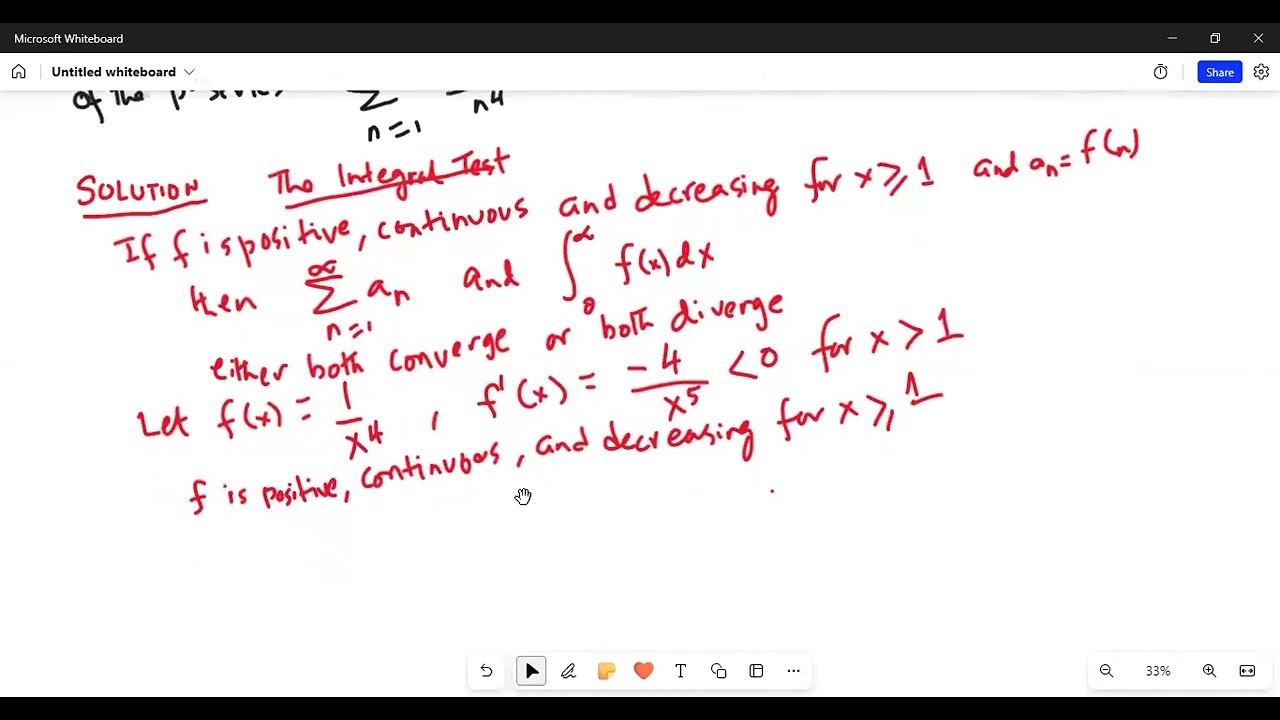 Microsoft Whiteboard
Untitled whiteboard
Share
of the p-series ∑ n=1 n⁴
SOLUTION The Integral Test
If f is positive, continuous and decreasing for x ≥ 1 and aₙ = f(n)
then ∑_{n=1}^{∞} aₙ and ∫_0^∞ f(x) dx
either both converge or both diverge
Let f(x) = 1/x⁴ , f'(x) = -4/x⁵ < 0 for x > 1
f is positive, continuous, and decreasing for x ≥ 1
33%